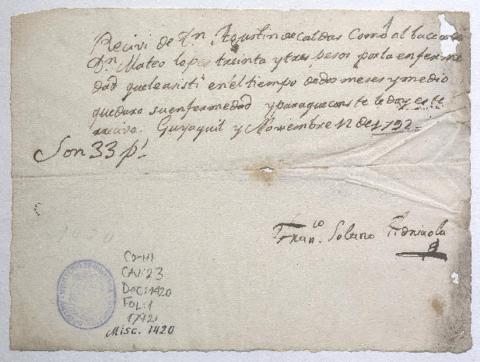 Recivi de Dn. Agustin de Caldas Como albacea de
Dn. Mateo Lopes treinta y tres pesos por la enferme
dad que le asisti en el tiempo de dos meses y medio
que duro su enfermedad y para que conste le doy este
recivo. Guyaquil y Noviembre 12 de 1792
Son 33 ps
Franco. Solano
CO-III
CAJ: 23
Doc: 1420
FOL: 1
1792
Misc. 1420